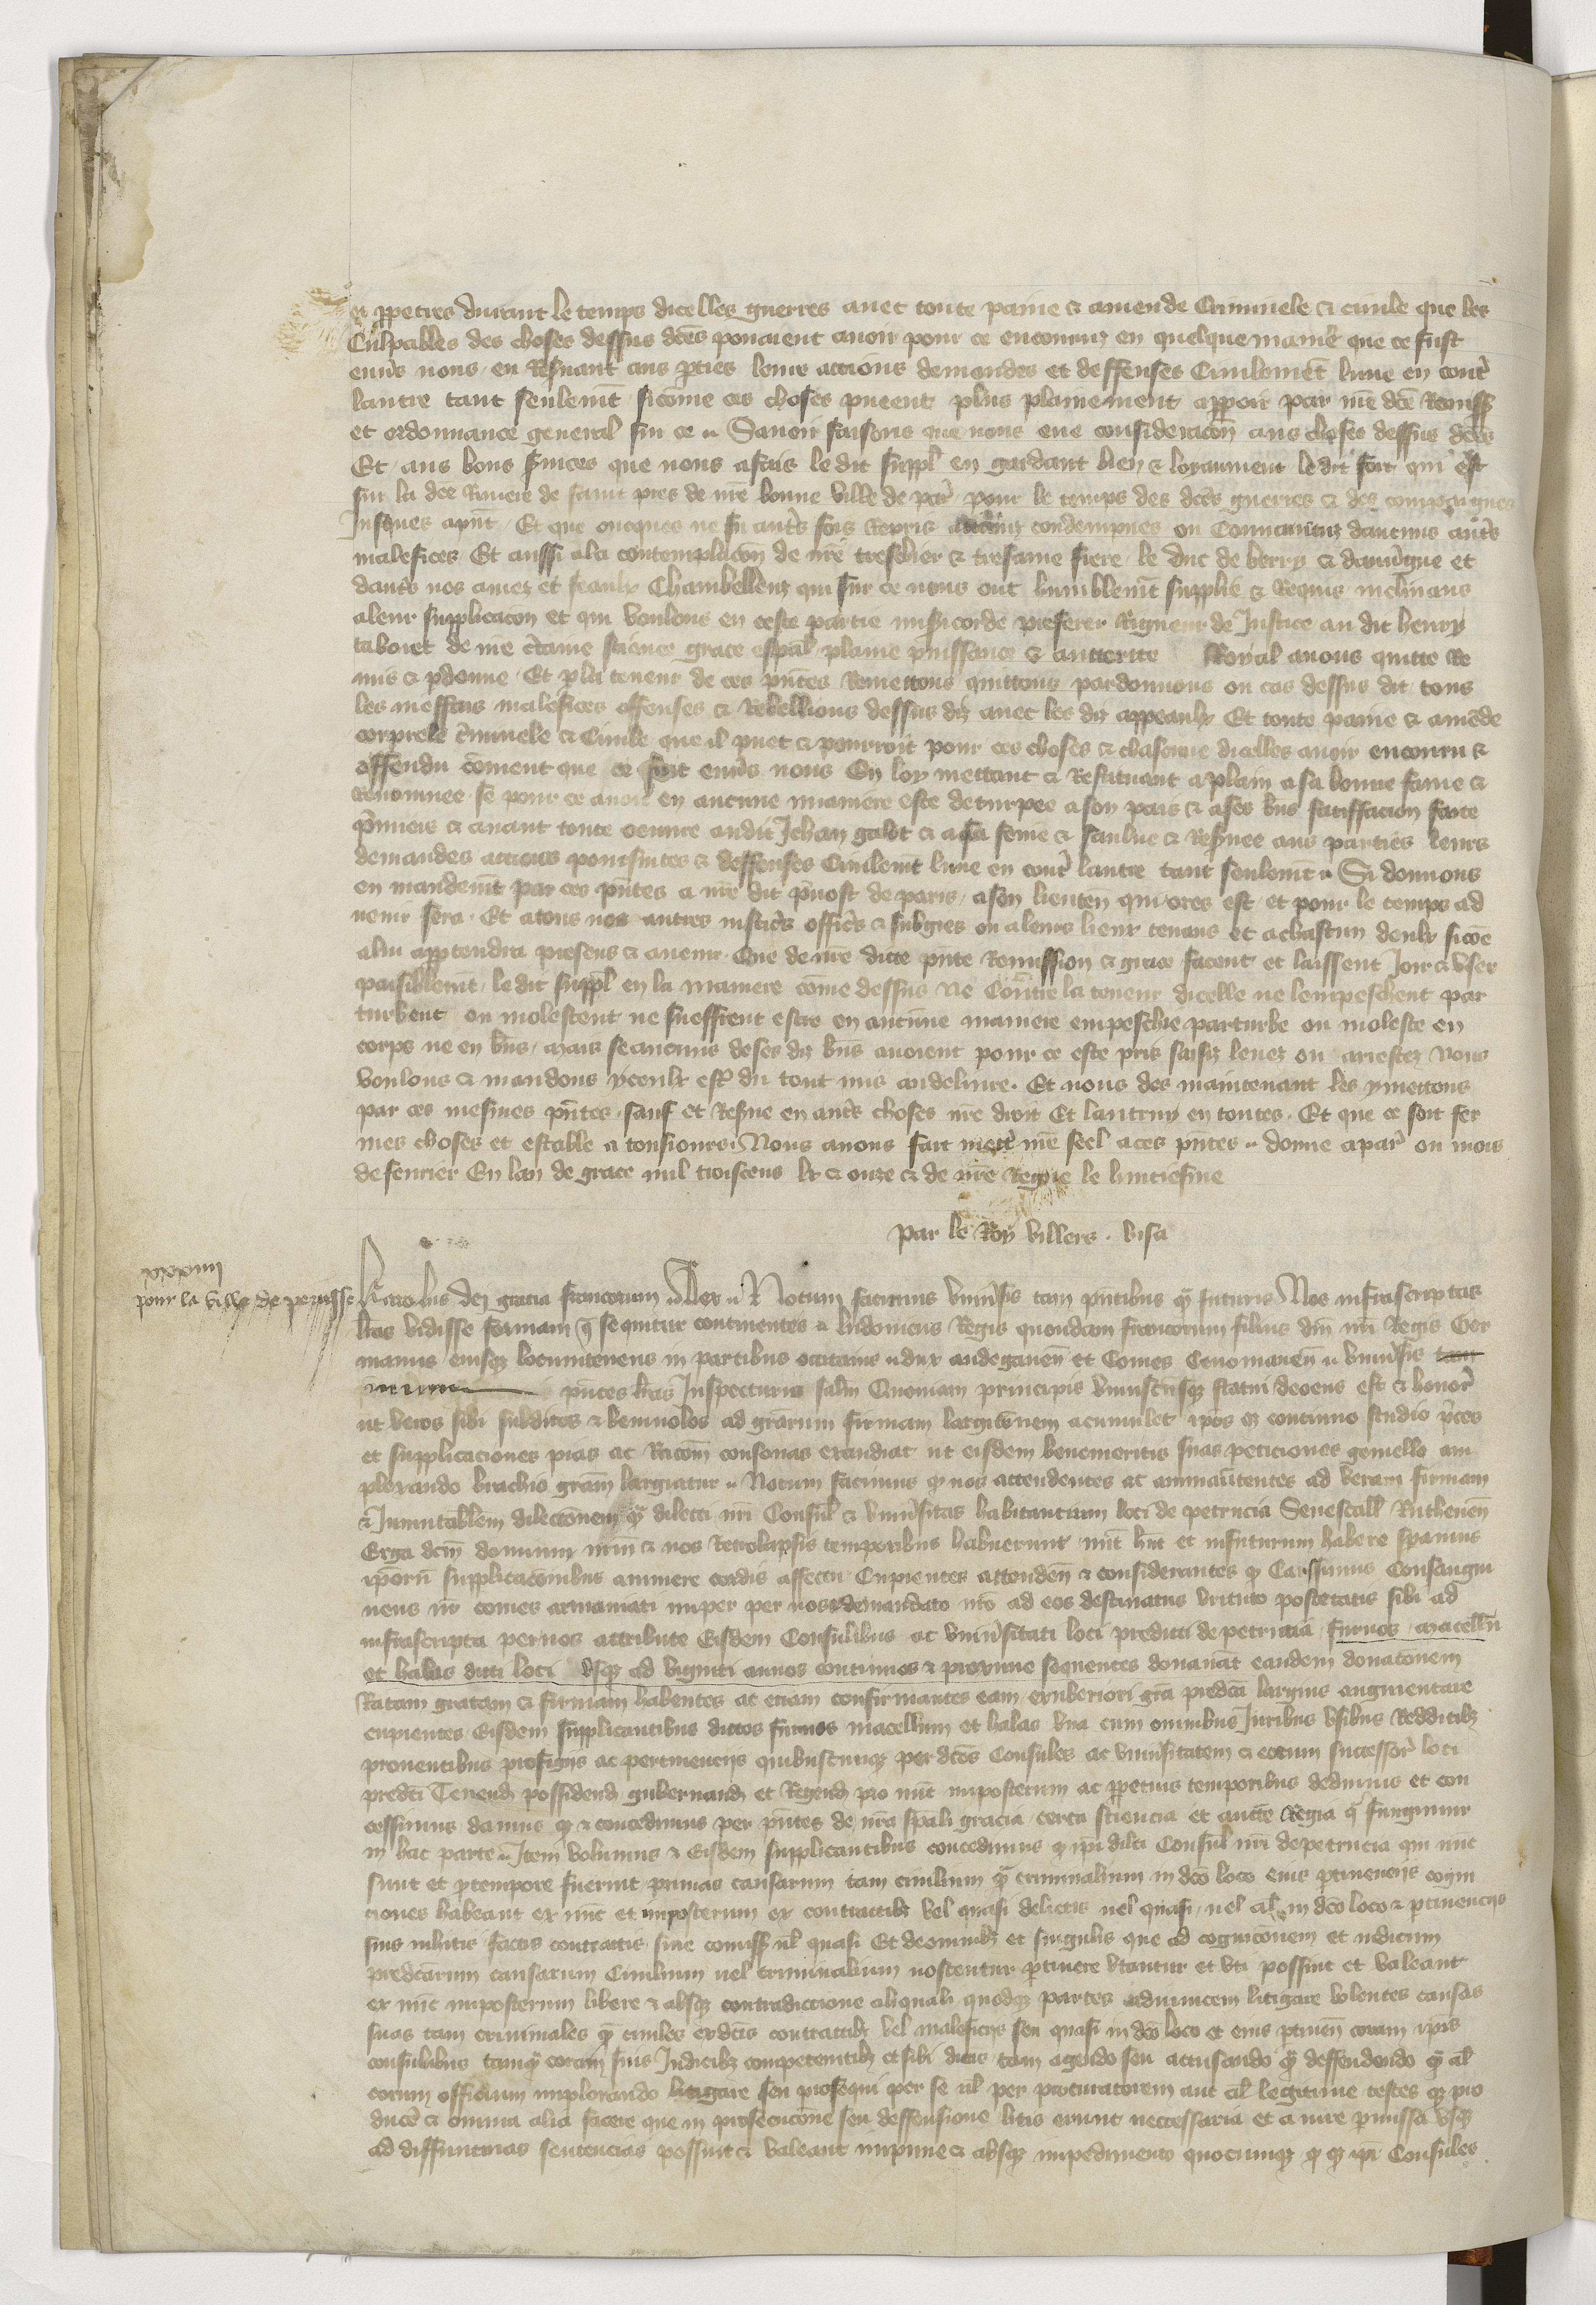 et ppetres durant le temps dicelles guerres avec toute paine & amende Criminele & civile que les
Culpables des choses dessus dces povaient avoir pour ce encouruz en quelque manie que ce fust
envs nous en Resvant aus pties leurs actions demandes et deffenses Civilemet lune en contre
lautre tant seulemt sicome ces choses puent plus plainement apparoir par nre dce Remiss
et ordonnance general sur ce Savoir faisons que nous eue consideracon aus choses dessus dces
Et aus bons svices que nous a fais le dit suppl en gardant bien & loyaument le dit fort qui est
sur la dce Riviere de saint pres de nre bonne ville de par pour le temps des dces guerres & des compaignes
Jusques apnt Et que oncques ne fu auts fois Repris condempnes ou Convaincuz daucuns auts
malefices Et aussi ala contemplacon de nre treschier & tresame frere le duc de berry & dauvgne et
dauts nos amez et feaulx Chambellenz qui sur ce nous ont humblemt supplie & Requis inclinans
aleur supplicacon et qui voulons en ceste partie misicorde preferer Rigueur de Justice au dit henry
tabouret de nre ctaine science grace espal plaine puissance & auctorite Royal avons quitte Re
mis & pdonne Et p la teneur de ces pntes Remettons quittons pardonnons ou cas dessus dit tous
les meffais malefices offenses & Rebellions dessus diz avec les diz appeaulx Et toute paine & amede
corprele cminele & Civile que il puet & pourroit pour ces choses & chascune dicelles avoir encouru &
offendu coment que ce soit envs nous En loy mettant & Restituant a plain a sa bonne fame &
Renommee se pour ce avoit en aucune maniere este deturpee a son pais & a ses bns satisfacion faite
pmiers & avant toute oeuvre audit Jehan galot & a sa feme & sauve & Resvee aus parties leurs
demandes actions poursuites & deffenses Civilemt lune en contre lautre tant seulemt Si donnons
en mandemt par ces pntes a nre dit pvost de paris a son lieuten qui ores est et pour le temps ad
venir sera Et a tous nos autres justices offices & subgies ou a leurs lieux tenans et a chascun deulx sicoe
a lui apptendra presens & avenir Que de nre dicte pnte Remission & grace facent et laissent Joir & User
paisiblemt le dit suppl en la maniere come dessus Ne Contre la teneur dicelle ne lempeschent par
turbent ou molestent ne sueffrent estre en aucune maniere empeschie parturbe ou moleste en
corps ne en bns mais se aucuns de ses diz bns avoient pour ce este pris saisiz levez ou arrestez Nous
voulons & mandons yceulx estre du tout mis au delivre Et nous des maintenant les y mettons
par ces mesmes pntes sauf et Resve en auts choses nre droit Et lautruy en toutes Et que ce soit fer
mes choses et estable a tousiours Nous avons fait mettre nre seel a ces pntes donne a par ou mois
de fevrier En lan de grace mil troiscens lx & onze & de nre Regne le huitiesme
par le Roy villers . visa
pour la ville de perusse
Karolus dei gracia francorum Rex Notum facimus universis tam pntibus q futuris Nos infrascriptas
lras vidisse formam q sequitur continentes ludovicus Regis quondam francorum filius dni nri Regis Ger
manus eiusq locumtenens in partibus occitanis dux andegaven et Comes Cenomanen univsis
pntes lras Inspecturis saltm Quoniam principis uniuscusq statui decens est & honor
ut veros sibi subditos & benivolos ad grarum firmam largiconem acumulet ipos q continuo studio pces
et supplicaciones pias ac Racom consonas exaudiat ut eisdem benemeritis suas peticiones gemello am
plexando brachio gram largiatur Notum facimus q nos attendentes ac animavtentes ad veram firmam
& Jnmutablem dileconem q dilecti nri Consul & univsitas habitantium loci de petrucia Senescall Ruthenen
Erga dcm dominum nrm & nos Retrolapsis temporibus habuerunt nut hnt et in futurum habere spamus
iporum supplicacionibus annuere cordis affectu Cupientes attenden & considerantes q Carissimus Consangui
neus nr comes armaniaci nuper per nos & demandato nro ad eos destinatus virtute potestatis sibi ad
infrascripta per nos attribute Eisdem Consulibus ac univsitati loci predicti de petrucia furnos macellu
et halas dicti loci usq ad viginti annos continuos & proxime sequentes donavat eandem donaconem
Ratam gratam & firmam habentes ac etiam confirmantes eam exuberiori gra predca largius augmentare
cupientes Eisdem supplicantibus dictos furnos macellum et halas una cum omnibus Juribus usibus Redditibz
proventibus proficuis ac pertinencijs quibuscunq per dcos Consules ac univsitatem & eorum successor loci
predci Tenend possidend gubernand et Regend pro nut imposterum ac ppetuis temporibus dedimus et con
cessimus damus q & concedimus per pntes de nra spali gracia certa sciencia et aucte Regia q fungimur
in hac parte Item volumus & Eisdem supplicantibus concedimus q ipi dilci Consul nri de petrucia qui nuc
sunt et p tempore fuerint primas causarum tam civilium q criminalium in dco loco eius ptinencijs cogni
ciones habeant ex nuc et imposterum ex contractibz vel quasi delictis vel quasi vel al in dco loco & ptinencijs
suis initis factis contractis sive comiss ul quasi Et de omnibz et singulis que ad cogniconem et iudicium
predcarum causarum Civilium vel criminalium noscentur ptinere utantur et uti possint et valeant
ex nuc imposterum libere & absq contradiccione aliquali quodq partes adinvicem litigare volentes causas
suas tam criminales q civiles ex dcis contractibz vel maleficijs seu quasi in dco loco et eius ptinen coram ipis
consulibus tamq coram suis Judicibz competentibz et sibi datis tam agendo seu accusando q deffendendo q al
eorum officium implorando litigare seu prosequi per se ul per procuratorem aut al legitime testes q pro
duce & omnia alia facere que in prosecucone seu deffensione litis erunt neccessaria et a iure pmissa usq
ad diffinitivas sentencias possint & valeant impune & absq impedimento quocunq q q ipi Consules